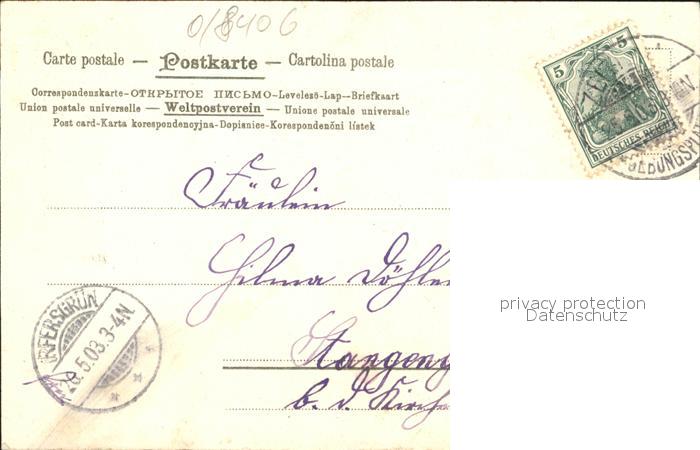 018406
Carte postale — Postkarte — Cartolina postale
Correspondenzkarte-ОТКРЫТОЕ ПИСЬМО-Levelező-Lap--Briefkaart
Union postale universelle — Weltpostverein — Unione postale universale
Post card-Karta korespondencyjna-Dopisnice-Korespondenční lístek
5 5
DEUTSCHES REICH
Fräulein
Hilma Döhler
privacy protection
Datenschutz
IRFERSGRÜN
26.5.03.3-4N
Stangeng
b. d. Kirche